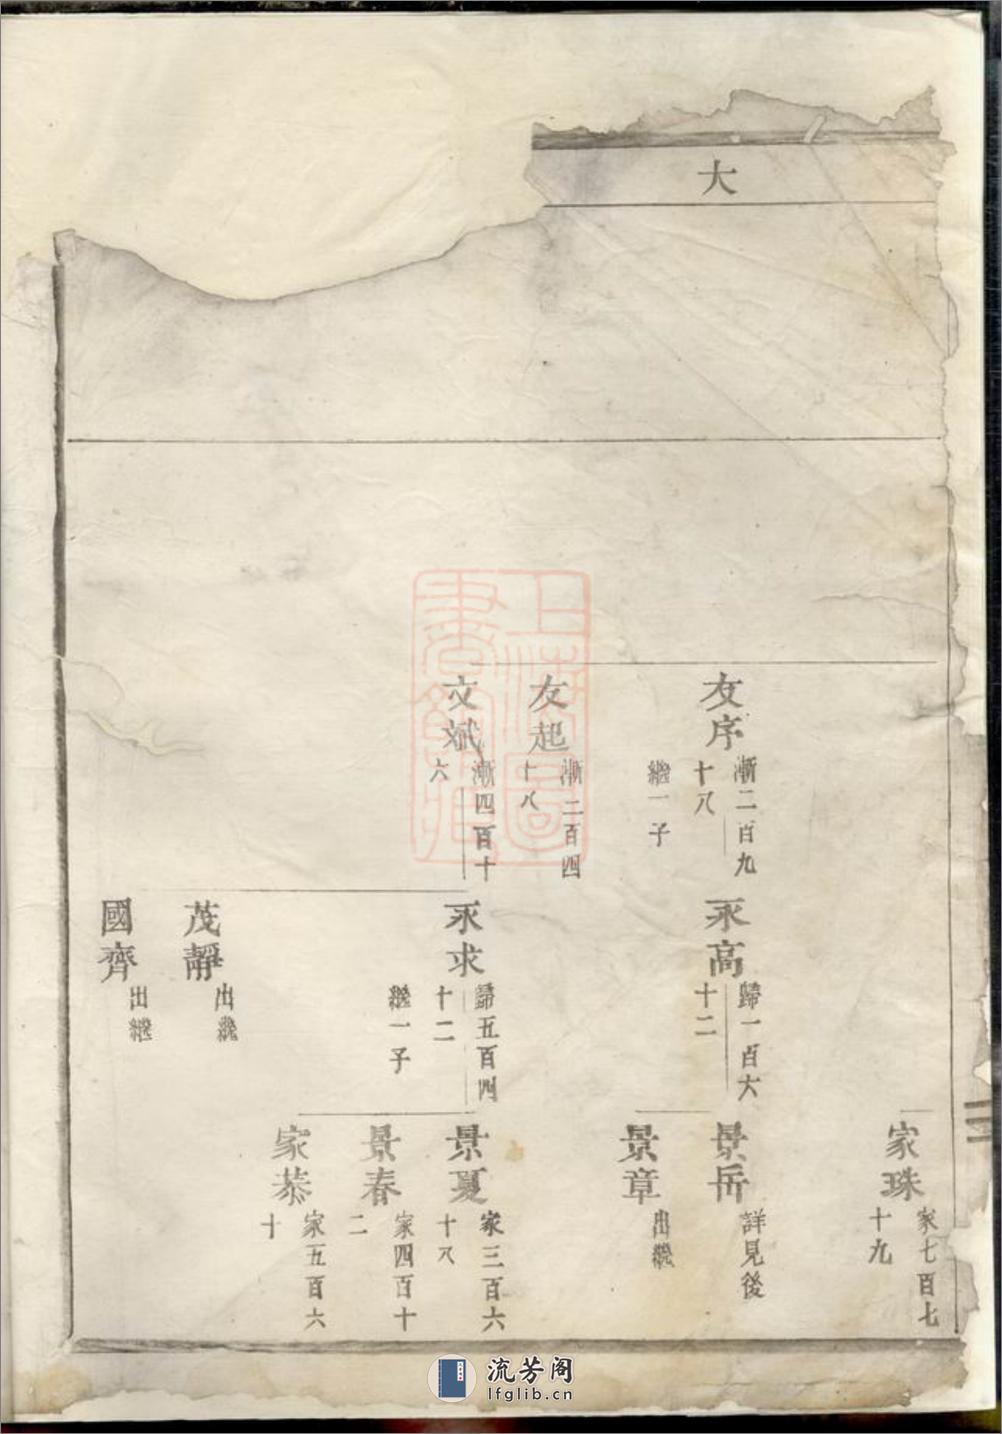 大
友序
漸二百九
十八
繼一子
友起
漸二百四
十八
文斌
漸四百十
六
永高
歸一百六
十二
永求
歸五百四
十二
繼一子
茂靜
出繼
國齊
出繼
家珠
家七百七
十九
景岳
詳見後
景章
出繼
景夏
家三百六
十八
景春
家四百十
二
家恭
家五百六
十
上海圖
書館藏
流芳阁
lfglib.cn